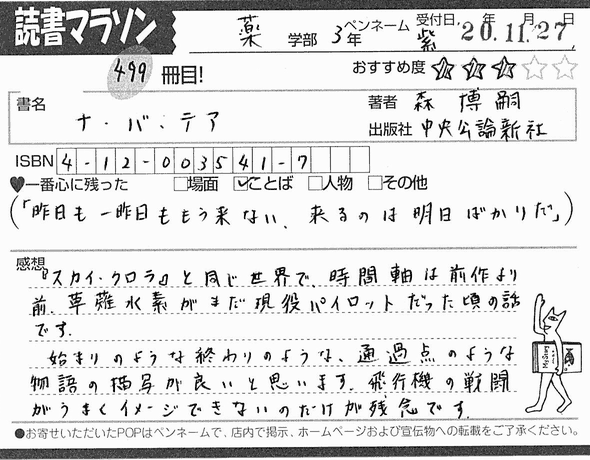 読書マラソン
薬 学部 3年 ペンネーム 紫 受付日 20.年11.月27日
499 冊目! おすすめ度
書名 ナ・バ・テア
著者 森 博嗣
出版社 中央公論新社
ISBN 4-12-003541-7
一番心に残った 場面 ことば 人物 その他
(「昨日も一昨日ももう来ない、来るのは明日ばかりだ」)
感想
『スカイ・クロラ』と同じ世界で、時間軸は前作より
前、草薙水素がまだ現役パイロットだった頃の話
です。
始まりのような終わりのような、通過点のような
物語の描写が良いと思います。飛行機の戦闘
がうまくイメージできないのだけが残念です。
●お寄せいただいたPOPはペンネームで、店内で掲示、ホームページおよび宣伝物への転載をご了承ください。